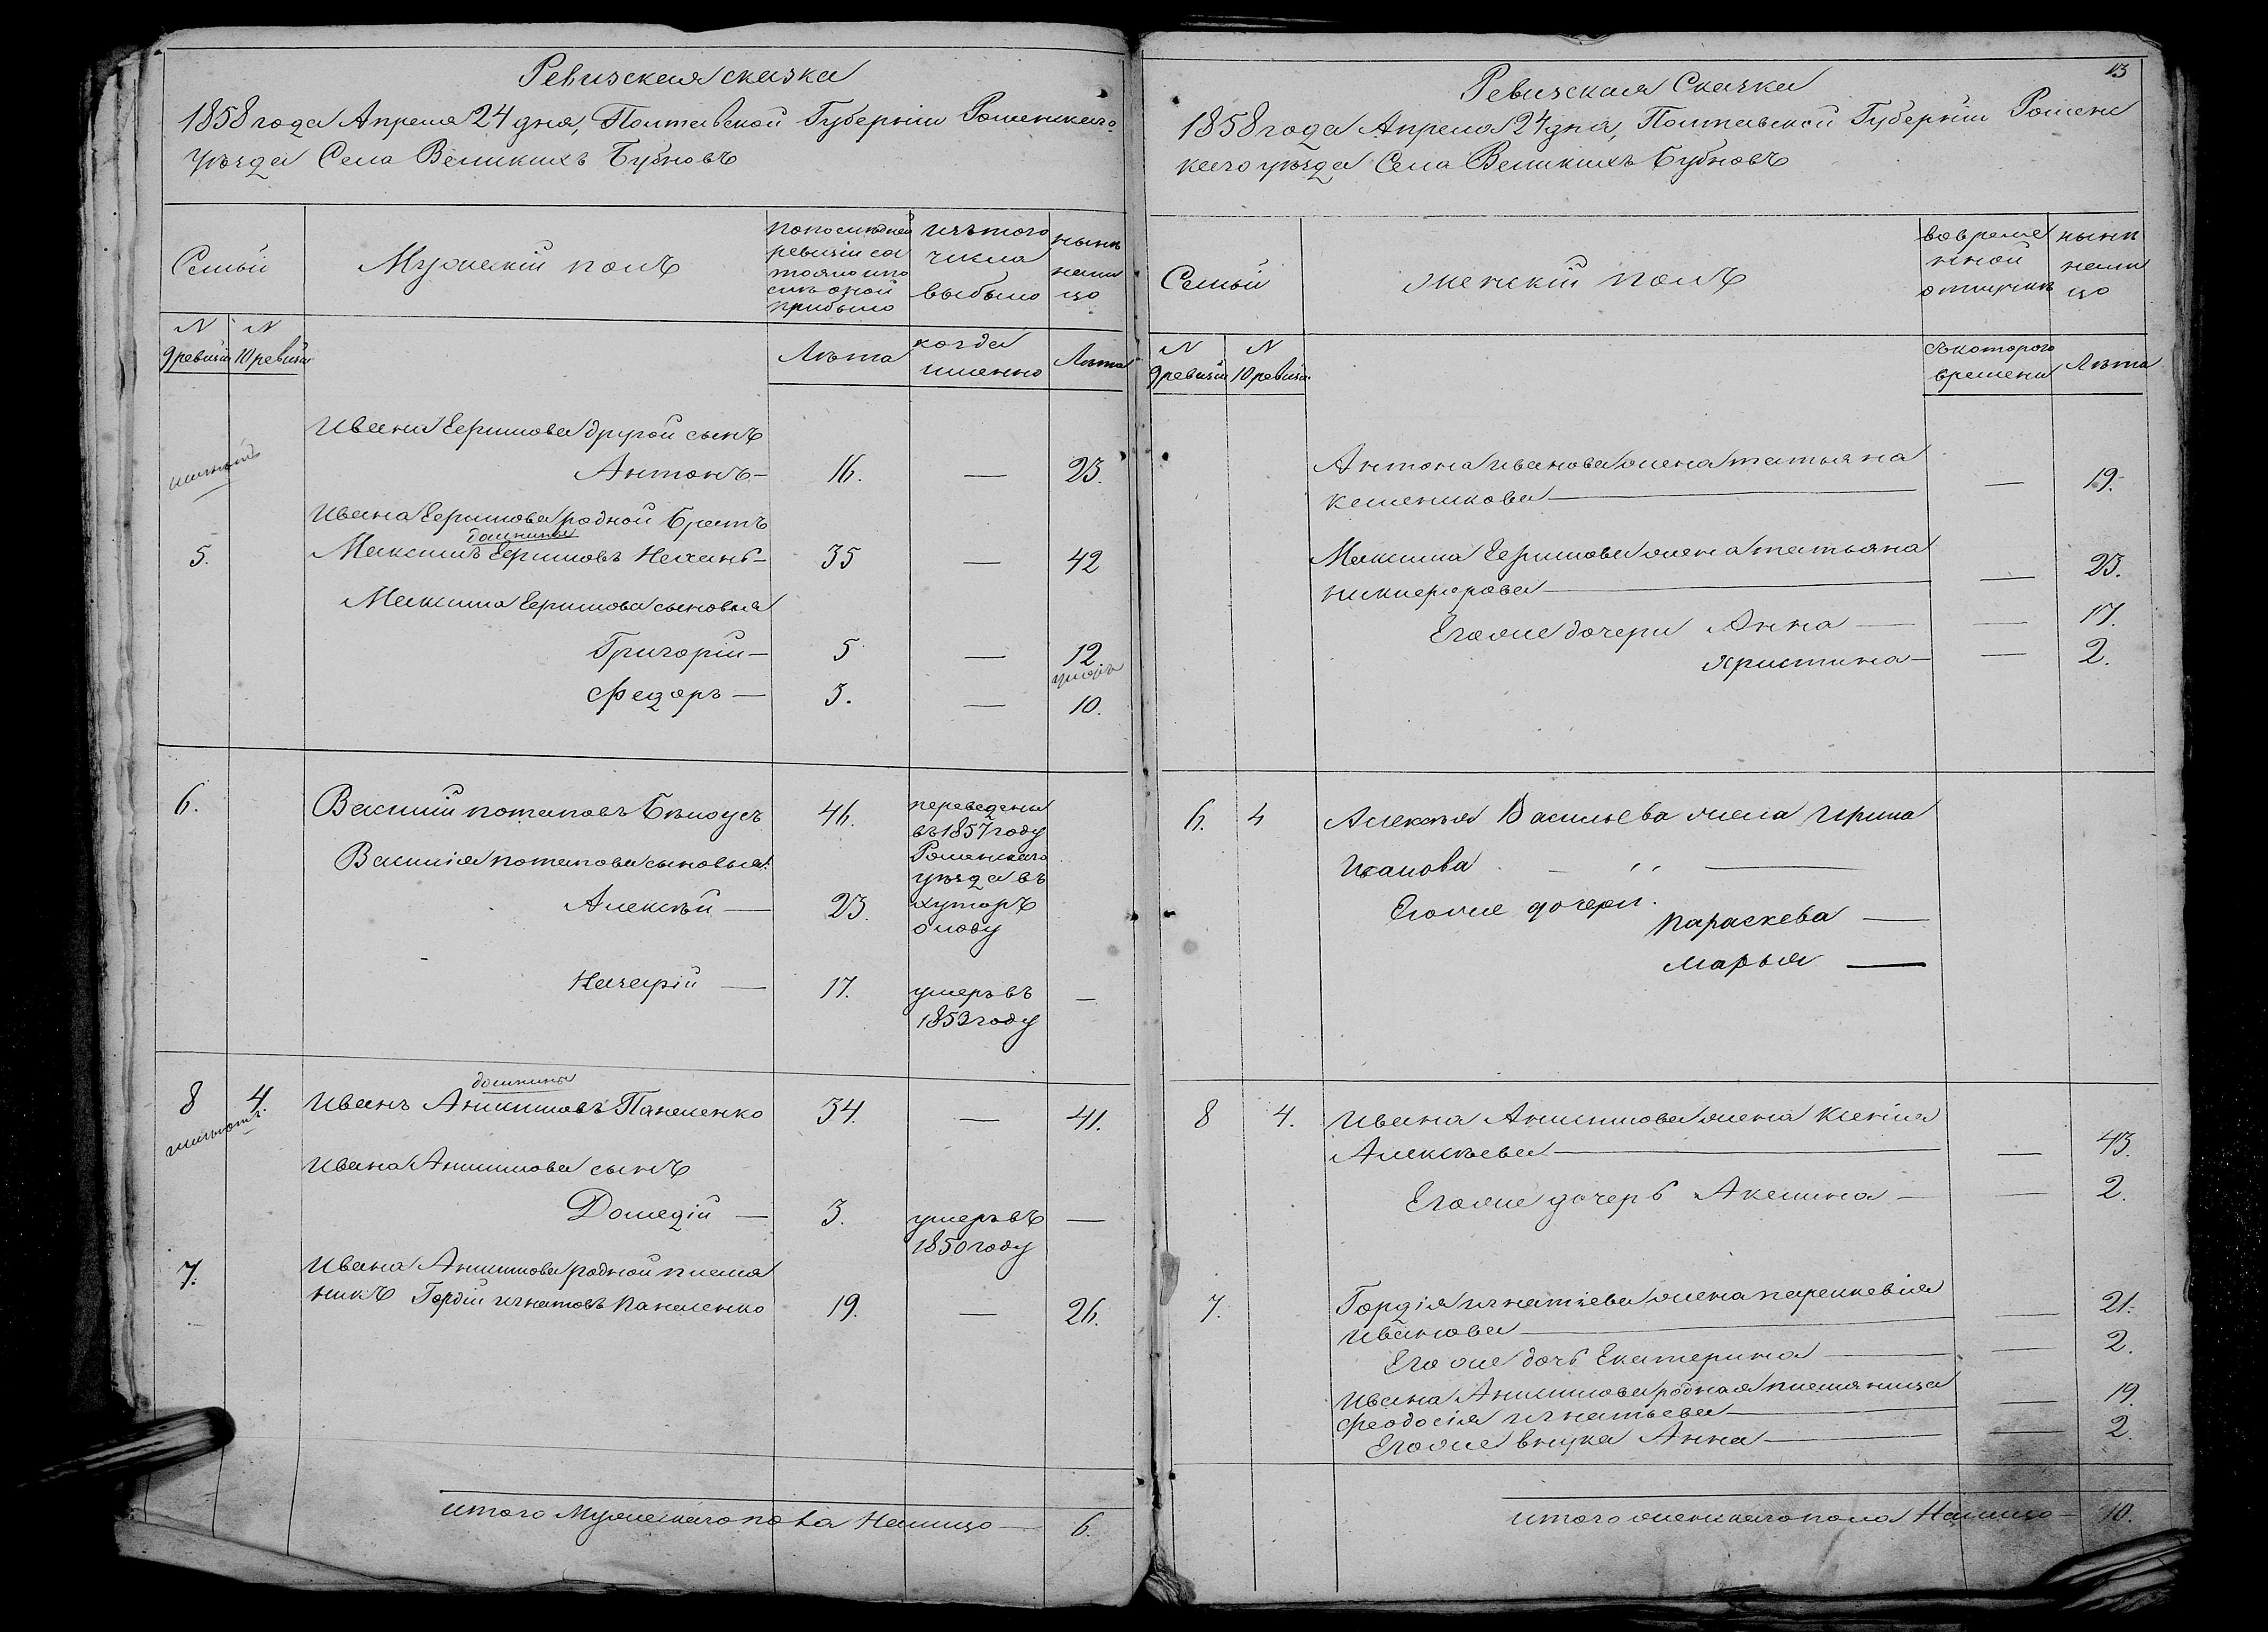 Ревизская сказка
1858 года Апреля 24 дня, Полтавской Губернiи Роменскаго
уѣзда Села Великихъ Бубновъ
Семьи
Мужескiй полъ
по последней
ревизiи со
тояло и по
слѣ оной
прибыло
изъ того
числа
выбыло
нынѣ
нали
цо
N
9 ревизiи
N
10 ревизiи
Лѣта
когда
именно
Лѣта
Ивана Ефимова другой сынъ
Антонъ — 16. — 23.
Ивана Ефимова родной братъ
5. Максимъ Ефимовъ — 35 — 42
Максима Ефимова сыновья
Григорiй — 5 — 12
умеръ
Федоръ — 3. — 10.
6. Василiй Потаповъ Бѣлоусъ 46. переведены
въ 1857 году
Роменскаго
уѣзда въ
хуторъ
Василiя Потапова сыновья:
Алексѣй — 23.
Назарiй — 17. умеръ въ —
1853 году
8 4. Иванъ Анисимовъ Панасенко 34. — 41.
Ивана Анисимова сынъ
Домедiй — 3. умеръ въ —
1850 году
7. Ивана Анисимова родной племя
никъ Гордiй Игнатовъ Панасенко 19. — 26.
итого Мужескаго пола Налицо — 6.
13
Ревизская Сказка
1858 года Апреля 24 дня, Полтавской Губернiи Ромен
скаго уѣзда Села Великихъ Бубновъ
Семьи
женскiй полъ
во време
нной
отлучкѣ
нынѣ
нали
цо
N
9 ревизiи
N
10 ревизiи
съ котораго
времени
Лѣта
Антона Иванова жена Татьяна
— 19.
Максима Ефимова жена Татьяна
Никифорова — — 23.
Его же дочери Анна — — 17.
Христина — — 2.
6. 4 Алексѣя Васильева жена Ирина
Его же дочери.
Параскева —
Марья —
8 4. Ивана Анисимова жена Ксенiя
Алексѣева — — 43.
Его же дочерь Акелина — — 2.
7. Гордiя Игнатiева жена Параскевiя
Иванова — — 21.
Его же дочь Екатерина — — 2.
Ивана Анисимова родная племянница
Феодосiя Игнатьева — — 19.
Его же внука Анна — — 2.
итого женскаго пола Налицо — 10.